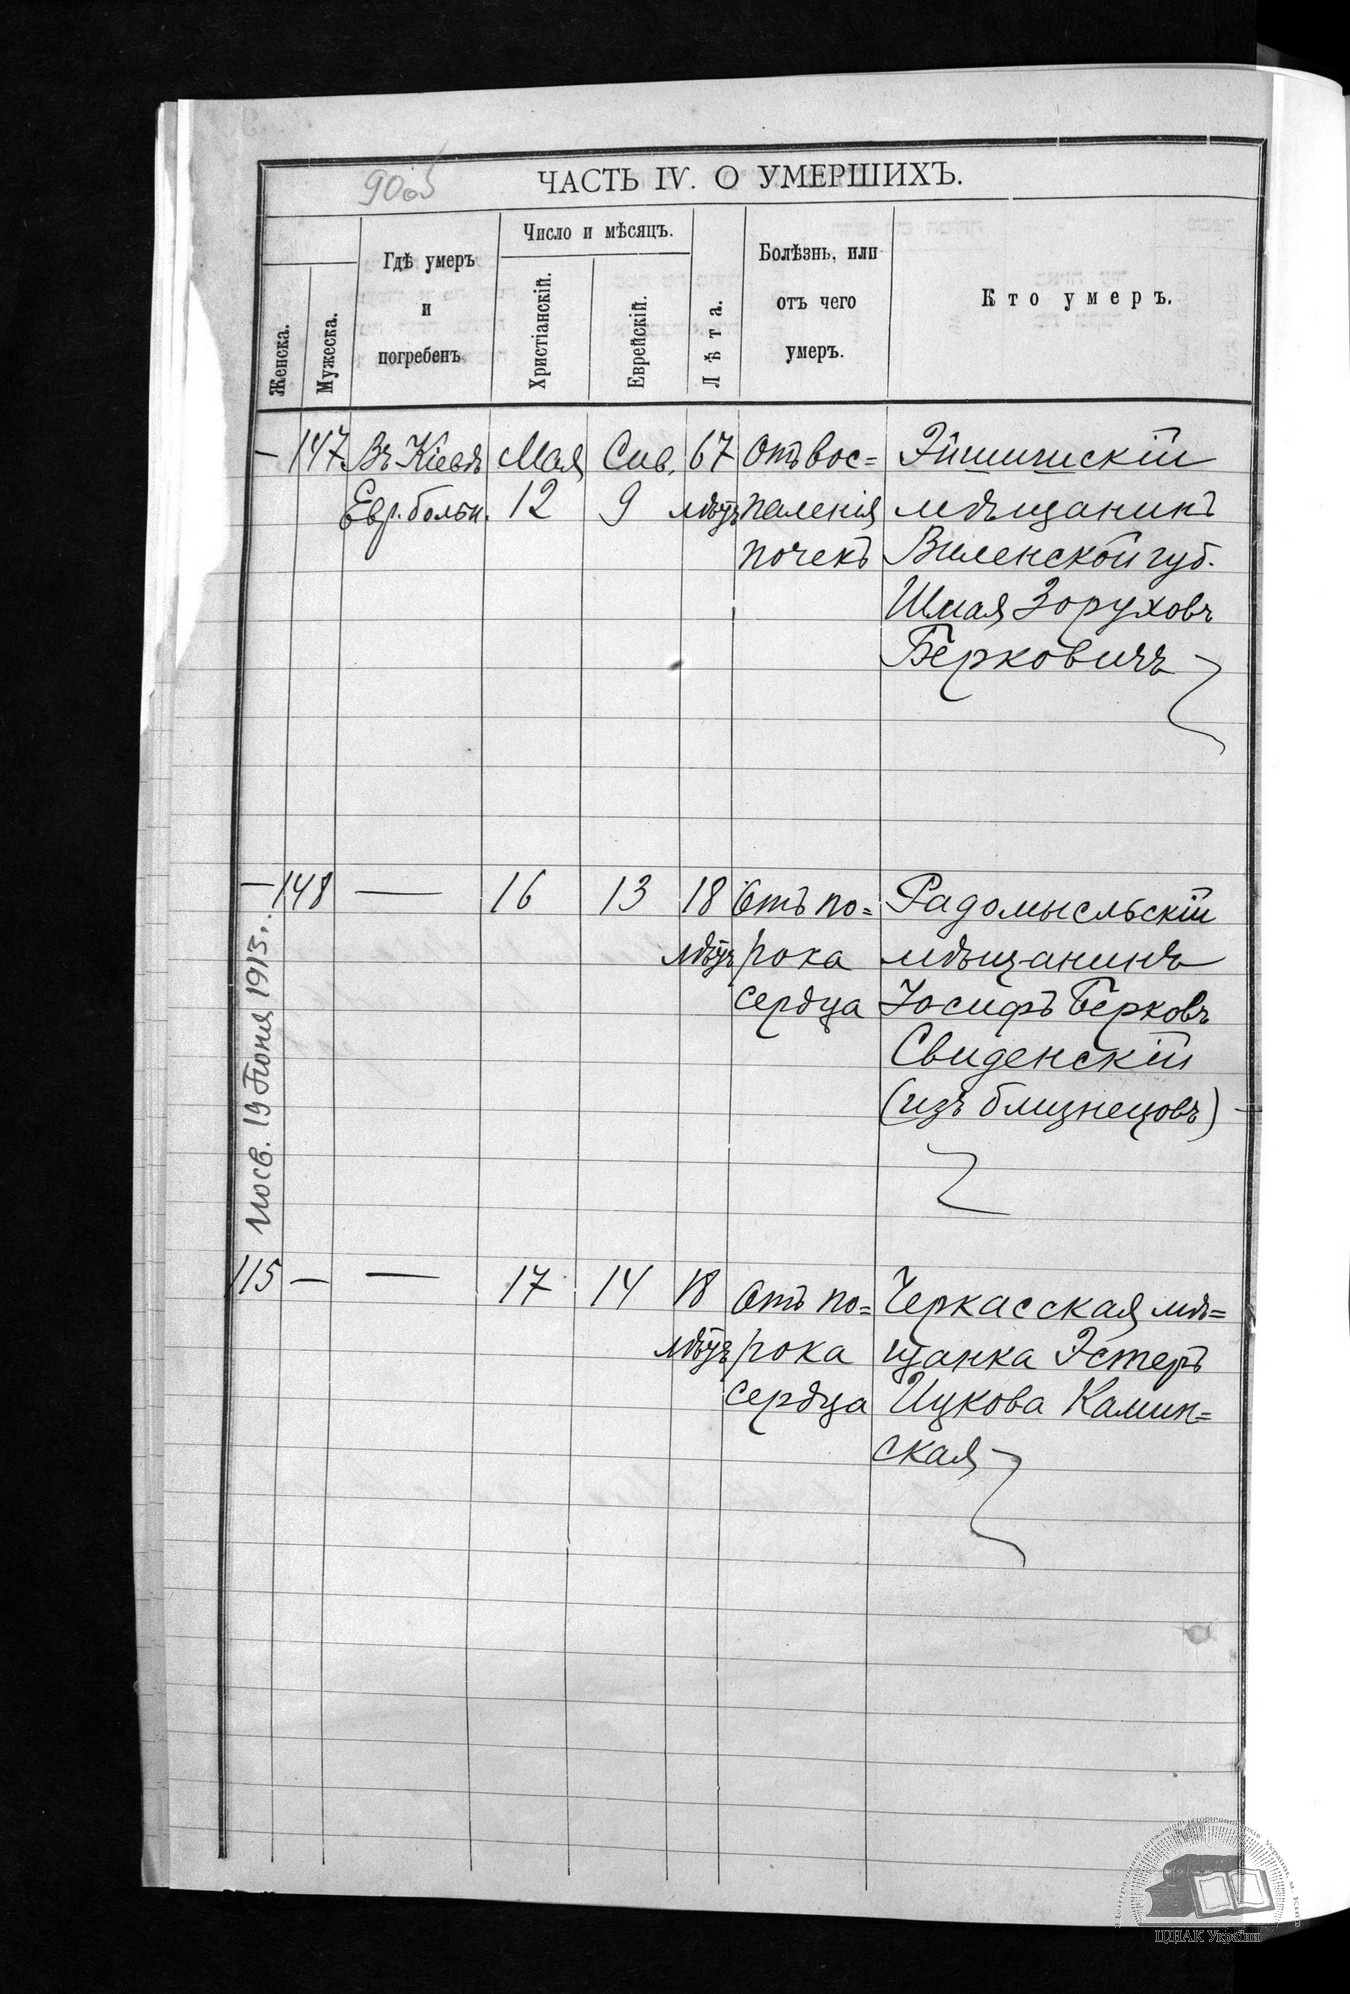 90об
ЧАСТЬ IV. О УМЕРШИХЪ.
Женска.
Мужеска.
Гдѣ умеръ
и
погребенъ.
Число и мѣсяцъ.
Христіанскій.
Еврейскій.
Лѣта.
Болѣзнь, или
отъ чего
умеръ.
Кто умеръ.
— 147 Въ Кіевѣ Мая Сив. 67 Отъ вос= Эйшишскій
Евр. больн. 12 9 лѣтъ паленія мѣщанинъ
почекъ Виленской губ.
Шмая Зоруховъ
Берковичъ
— 148 — 16 13 18 Отъ по= Радомысльскій
рока мѣщанинъ
сердца Іосифъ Берковъ
Свиденскій
(изъ близнецовъ)
115 — — 17 14 18 Отъ по= Черкасская мѣ=
рока щанка Эстеръ
сердца Ицкова Камин=
ская
19 Іюня 1915 г.
ЦДІАК України